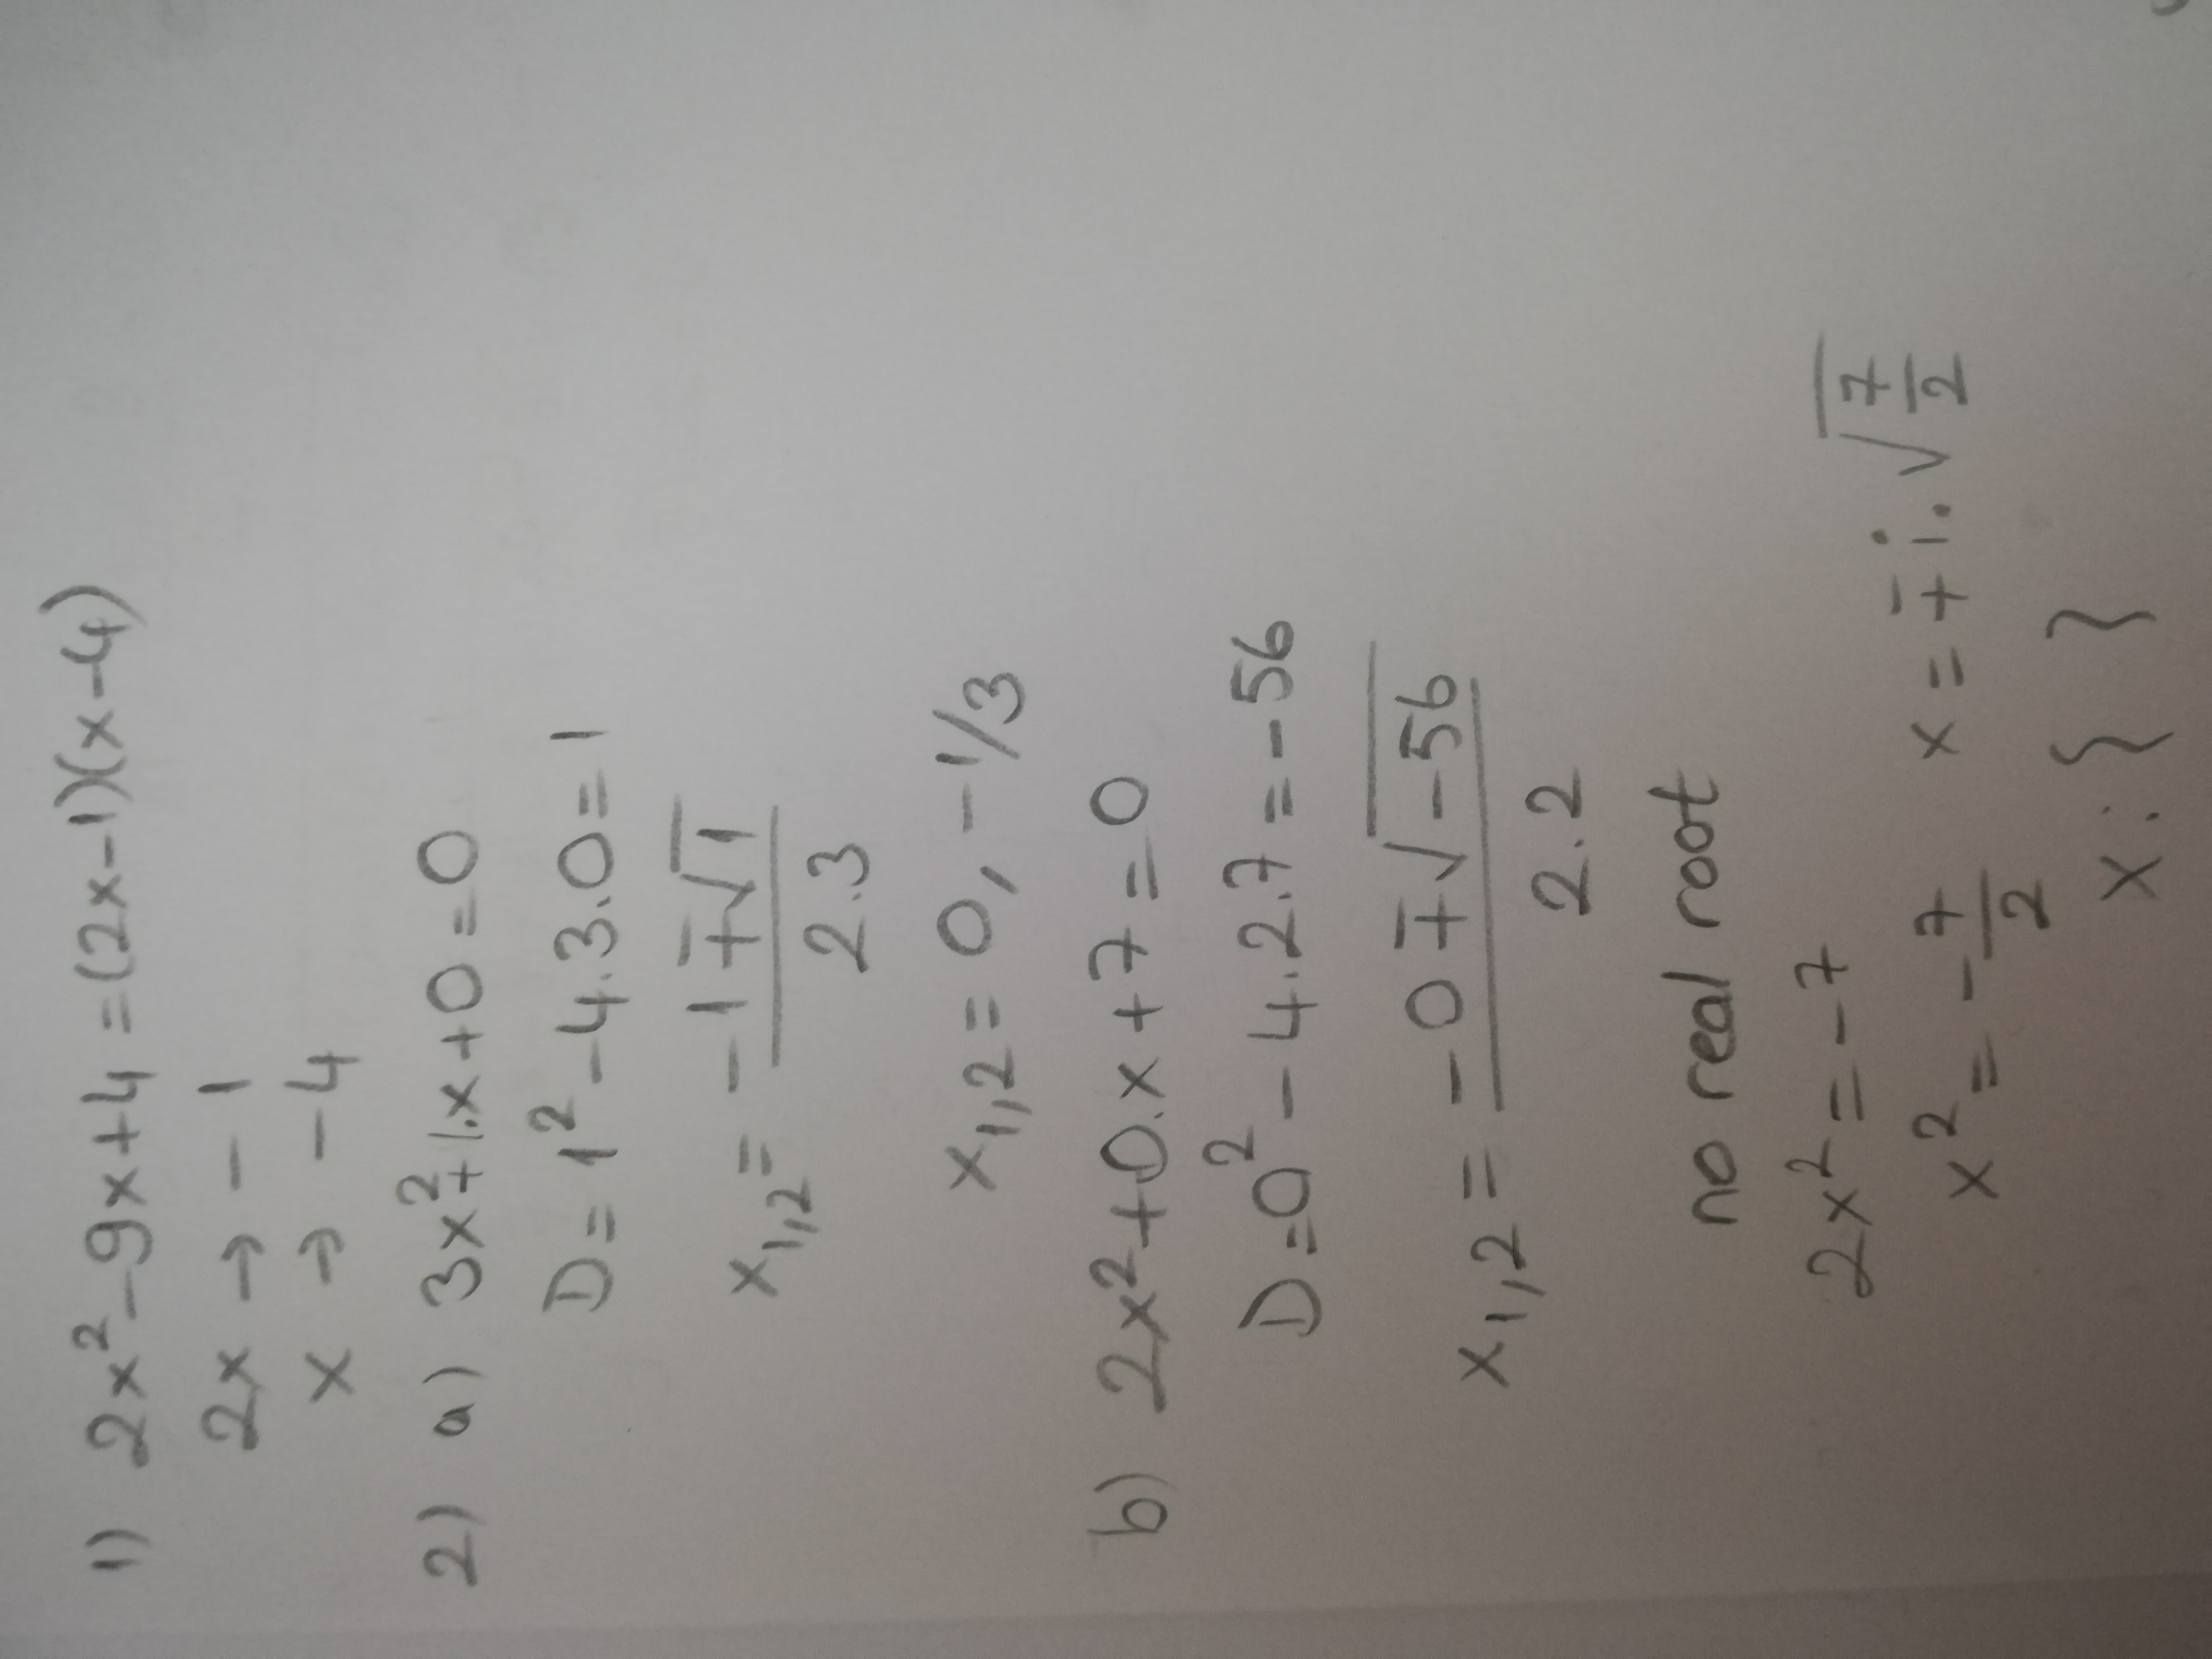 1) 2x²-9x+4=(2x-1)(x-4)
2x → -1
x → -4
2) a) 3x²+1.x+0=0
D=1²-4.3.0=1
x₁,₂= (-1∓√1)/(2.3)
x₁,₂=0, -1/3
b) 2x²+0.x+7=0
D=0²-4.2.7=-56
x₁,₂= (-0∓√-56)/(2.2)
no real root
2x²=-7
x²=-7/2 x=∓i.√(7/2)
x:{ }